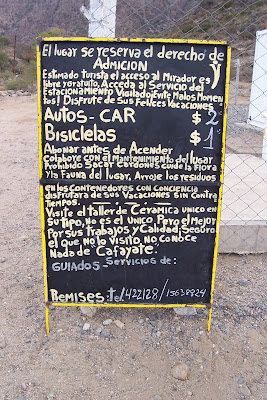 El lugar se reserva el derecho de
ADMICION
Estimado turista el acceso al Mirador es y
libre y gratuito. Acceda al Servicio del
Estacionamiento Vigilado. Evite Malos Momen
tos! Disfrute de Sus Felices Vacaciones
Autos - CAR $ 2
Bisicletas $ 1
Abonar antes de Acender
Colabore con el mantenimiento del lugar
Prohibido Sacar Cardones cuide la Flora
y la Fauna del lugar, Arroje los residuos
en los contenedores con conciencia
disfrutara de sus Vacaciones sin Contra
tiempos.
Visite el taller de Ceramica unico en
su Tipo, No es el unico, Pero el Mejor
Por sus trabajos y Calidad, Seguro
el que no lo visito, no, conoce
Nada de Cafayate.
Servicios de:
GUIADOS -
Remises: tel/422128/15638824